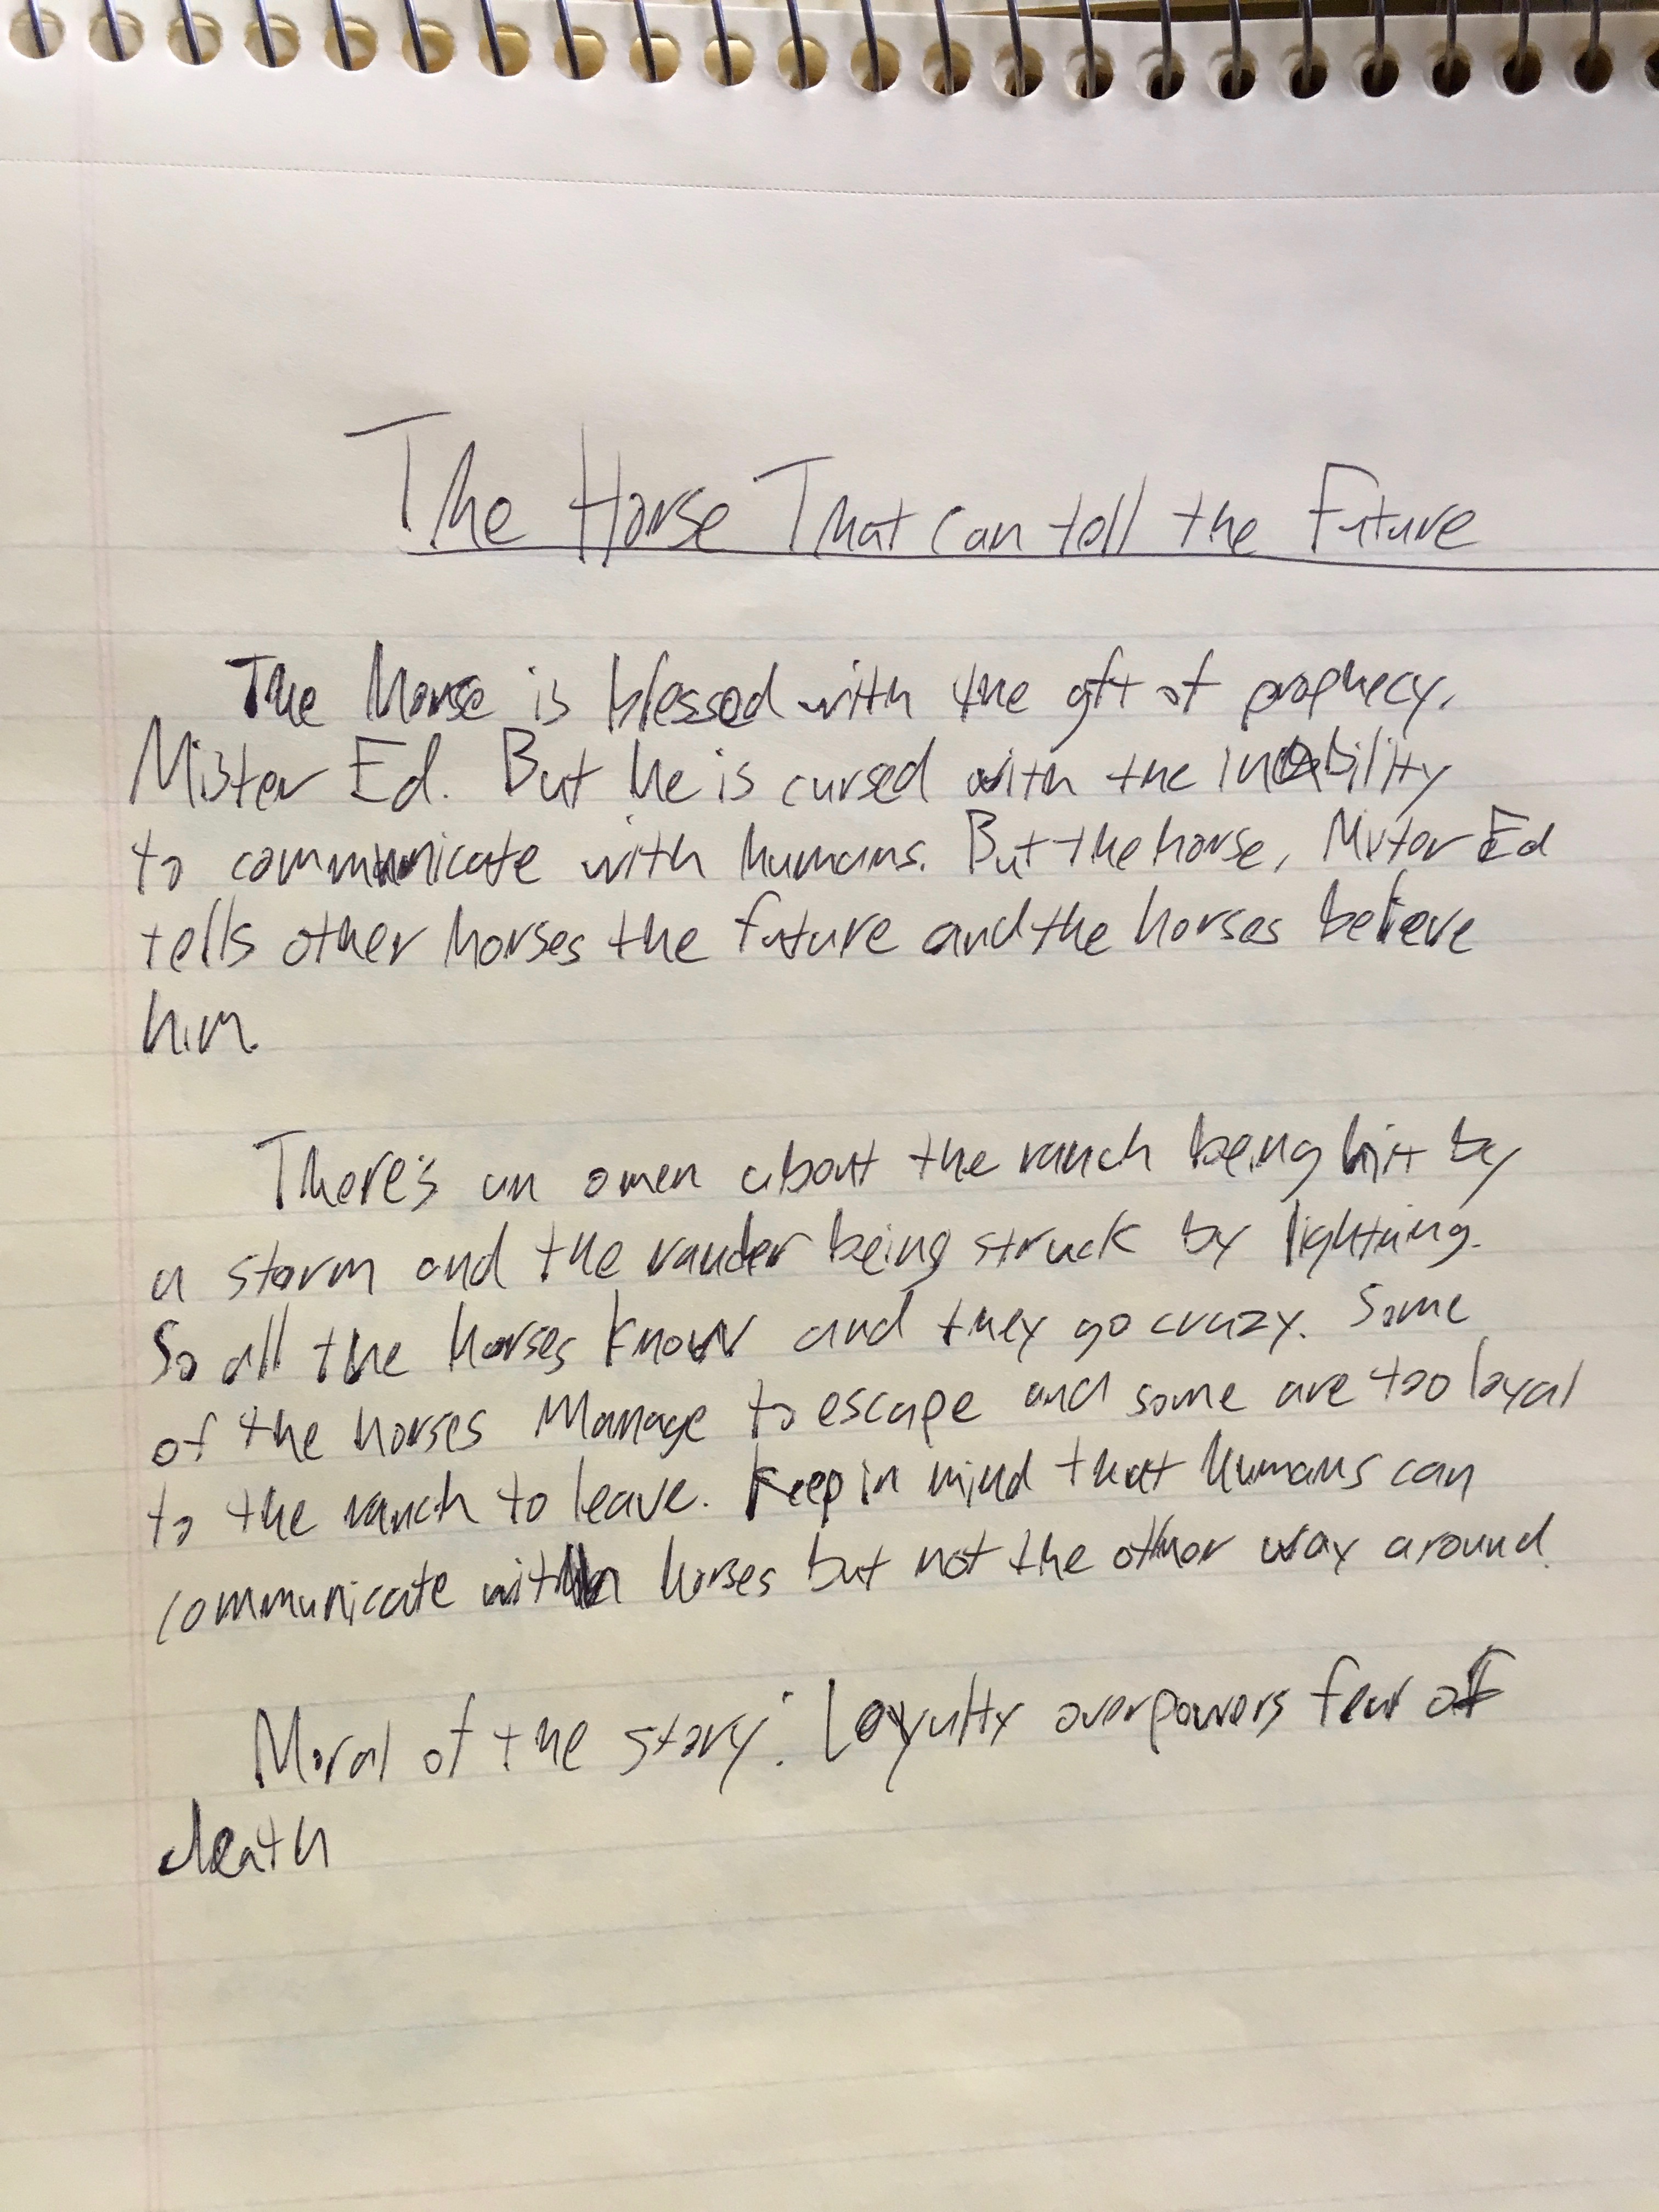 The Horse That Can tell the Future
The horse is blessed with the gft of prophecy,
Mister Ed. But he is cursed with the inability
to communicate with humans. But the horse, Mister Ed
tells other horses the future and the horses believe
him.
There's an omen about the ranch being hit by
a storm and the rancher being struck by lightning.
So all the horses know and they go crazy. Some
of the horses manage to escape and some are too loyal
to the ranch to leave. Keep in mind that humans can
communicate with horses but not the other way around.
Moral of the story: Loyalty overpowers fear of
death